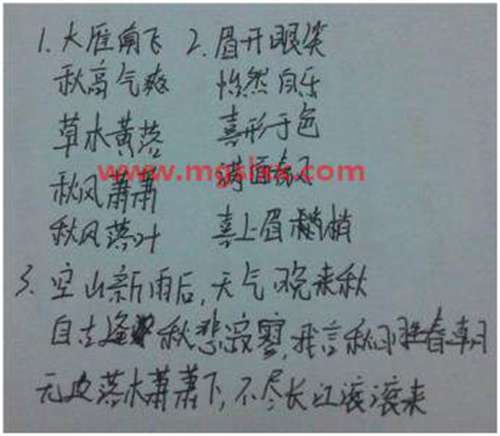 1. 大雁南飞 2. 眉开眼笑
秋高气爽 怡然自乐
草木黄落 喜形于色
秋风萧萧 面春风
秋风落叶 喜上眉梢
3. 空山新雨后,天气晚来秋
自古逢秋悲寂寥,我言秋日胜春朝
无边落木萧萧下,不尽长江滚滚来